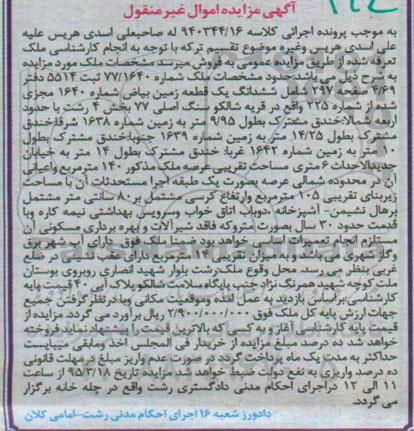 آگهی مزایده اموال غیر منقول
به موجب پرونده اجرائی کلاسه ۹۴۰۳۴۴/۱۶ له صاحبعلی اسدی هریس علیه
علی اسدی هریس وغیره موضوع تقسیم ترکه با توجه به انجام کارشناسی ملک
تعرفه شده از طریق مزایده عمومی به فروش میرسد مشخصات ملک مورد مزایده
به شرح ذیل می باشد:حدود مشخصات ملک شماره ۷۷/۱۶۴۰ ثبت ۵۵۱۴ دفتر
۴/۶۹ صفحه ۲۹۷ شامل ششدانگ یک قطعه زمین بیاض شماره ۱۶۴۰ مجزی
شده از شماره ۲۲۵ واقع در قریه شالکو سنگ اصلی ۷۷ بخش ۴ رشت با حدود
اربعه شمالا:خندق مشترک بطول ۹/۹۵ متر به زمین شماره ۱۶۳۸ شرقا:خندق
مشترک بطول ۱۴/۲۵ متر به زمین شماره ۱۶۳۹ جنوبا:خندق مشترک بطول
۱۰ متر به زمین شماره ۱۶۴۲ غربا: خندق مشترک بطول ۱۴ متر به خیابان
جدیدالاحداث ۶ متری مساحت تقریبی عرصه ملک مذکور ۱۴۰ مترمربع واعیانی
آن در محدوده شمالی عرصه بصورت یک طبقه اجرا مستحدثات آن با مساحت
زیربنای تقریبی ۱۰۵ مترمربع وارتفاع کرسی مشتمل بر۸۰ سانتی متر مشتمل
برهال نشیمن- آشپزخانه ،دوباب اتاق خواب وسرویس بهداشتی نیمه کاره وبا
قدمت حدود ۳۰ سال بصورت متروکه فاقد شیرآلات و بهره برداری مسکونی آن
مستلزم انجام تعمیرات اساسی خواهد بود ضمنا ملک فوق دارای آب شهر برق
وگاز شهری می باشد و به میزان تقریبی ۱۴ مترمربع دارای عقب نشینی در ضلع
غربی بنظر می رسد. محل وقوع ملک:رشت بلوار شهید انصاری روبروی بوستان
ملت کوچه شهید همرنگ نژاد جنب پایگاه سلامت شالکو پلاک آبی ۴۰ قیمت پایه
کارشناسی:براساس بازدید به عمل آمده وموقعیت مکانی وبا در نظر گرفتن جمیع
جهات ارزش پایه کل ملک فوق ۲/۹۰۰/۰۰۰/۰۰۰ ریال برآورد می گردد. مزایده از
قیمت پایه کارشناسی آغاز و به کسی که بالاترین قیمت را پیشنهاد نماید فروخته
خواهد شد ده درصد مبلغ مزایده از خریدار فی المجلس اخذ ومابقی میبایست
حداکثر به مدت یک ماه پرداخت گردد در صورت عدم واریز مبلغ درمهلت قانونی
ده درصد واریزی به نفع دولت ضبط خواهد شد مزایده تاریخ ۹۵/۳/۱۸ از ساعت
۱۱ الی ۱۲ دراجرای احکام مدنی دادگستری رشت واقع در چله خانه برگزار
می گردد.
دادورز شعبه ۱۶ اجرای احکام مدنی رشت-امامی کلان